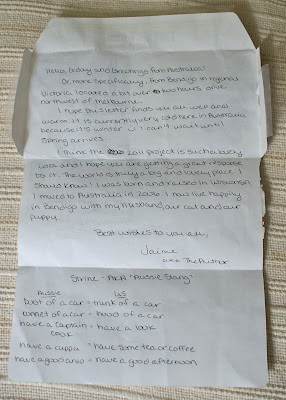 Hello, G'day and Greetings from Australia!
Or, more specifically, from Bendigo in regional
Victoria located a bit over two hours drive
northwest of Melbourne.
I hope this letter finds you all well and
warm. It is currently very cold here in Australia
because it's winter I can't wait until
Spring arrives.
I think the 2011 project is such a lovely
idea and I hope you are getting a great response
to it. The world is truly a big and lovely place. I
should know! I was born and raised in Wisconsin.
I moved to Australia in I now live happily
in Bendigo with my husband, our cat and our
puppy.
Best wishes to you all,
Jaime
a.k.a. The Author
Strine - AKA "Aussie Slang"
Aussie US
boot of a car = trunk of a car
bonnet of a car = hood of a car
have a captain = have a look
cook
have a cuppa = have some tea or coffee
have a good arvo = have a good afternoon